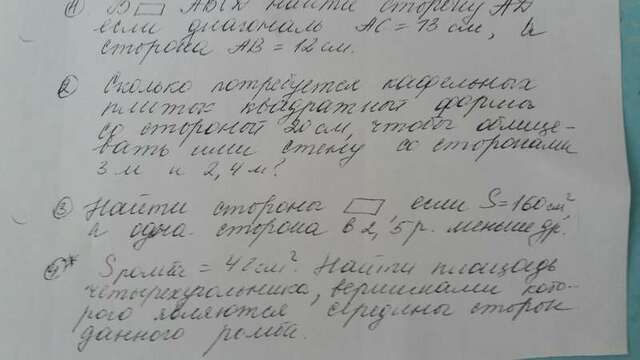 1) В ▭ АВСД найти сторону АД
если диагональ АС = 13 см, а
сторона АВ = 12 см.
2) Сколько потребуется кафельных
плиток квадратной формы
со стороной 20 см, чтобы облице-
вать ими стену со сторонами
3 м и 2,4 м?
3) Найти стороны ▭, если S = 160 см²,
а одна сторона в 2,5 р. меньше др.
4)* Sромба = 48 см². Найти площадь
четырехугольника, вершинами кото-
рого являются середины сторон
данного ромба.